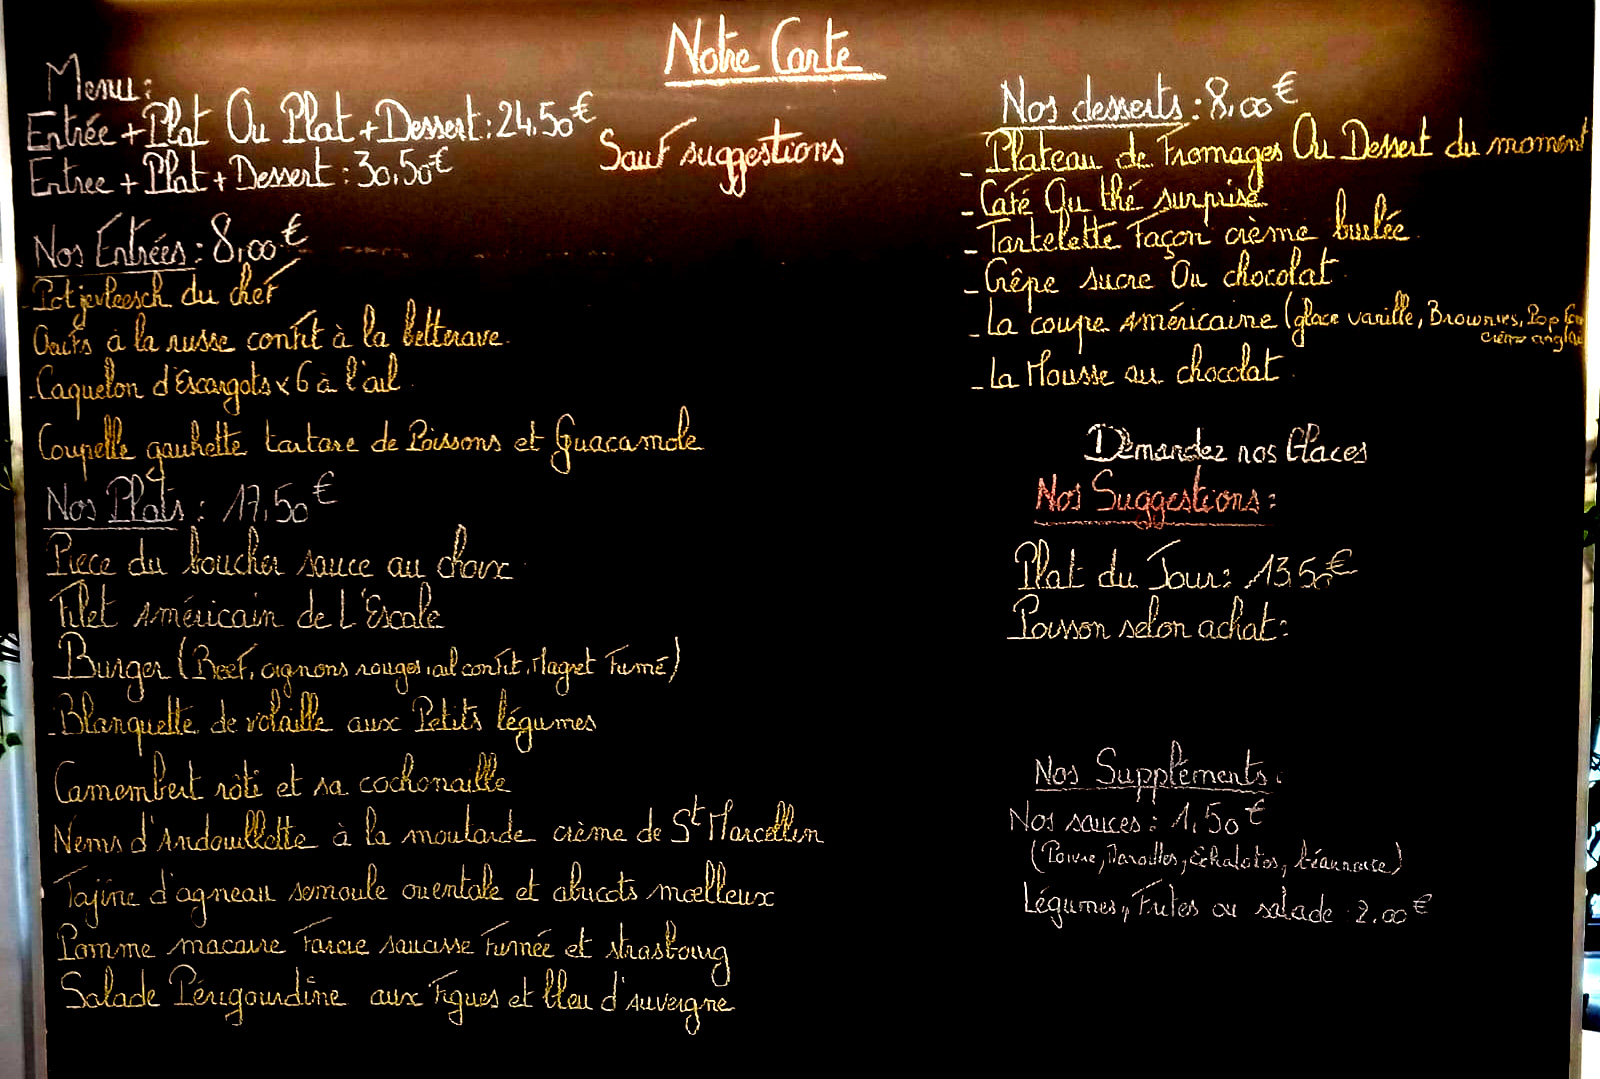 Notre Carte
Menu:
Entrée + Plat Ou Plat + Dessert: 24,50€
Entree + Plat + Dessert: 30,50€
Sauf suggestions
Nos Entrées: 8,00€
- Potjevleesch du chef
Oeufs à la russe confit à la betterave.
- Caquelon d'Escargots x 6 à l'ail.
Coupelle gauhette tartare de Poissons et Guacamole
Nos Plats: 17,50€
Piece du boucher sauce au choix
Filet Américain de L'Escale
Burger (Beef, oignons rouges, ail confit, Magret Fumé)
- Blanquette de volaille aux Petits légumes
Camembert rôti et sa cochonaille
Nems d'Andouillette à la moutarde crème de St Marcellin
Tajine d'agneau semoule orientale et abricots moelleux
Pomme macaire Farcie saucisse Fumée et strasbourg
Salade Périgourdine aux Figues et bleu d'auvergne
Nos desserts: 8,00€
- Plateau de Fromages Ou Dessert du moment
- Café Ou thé surprise
- Tartelette Façon crème brulée
- Crêpe sucre Ou chocolat
- La coupe américaine (glace vanille, Brownies, Pop
crème
- La Mousse au chocolat.
Demandez nos Glaces
Nos Suggestions:
Plat du Jour: 13,50€
Poisson selon achat:
Nos Suppléments:
Nos sauces: 1,50€
(Poivre, Maroilles, Echalotes, béarnaise)
Légumes, Frites ou salade 2.00€